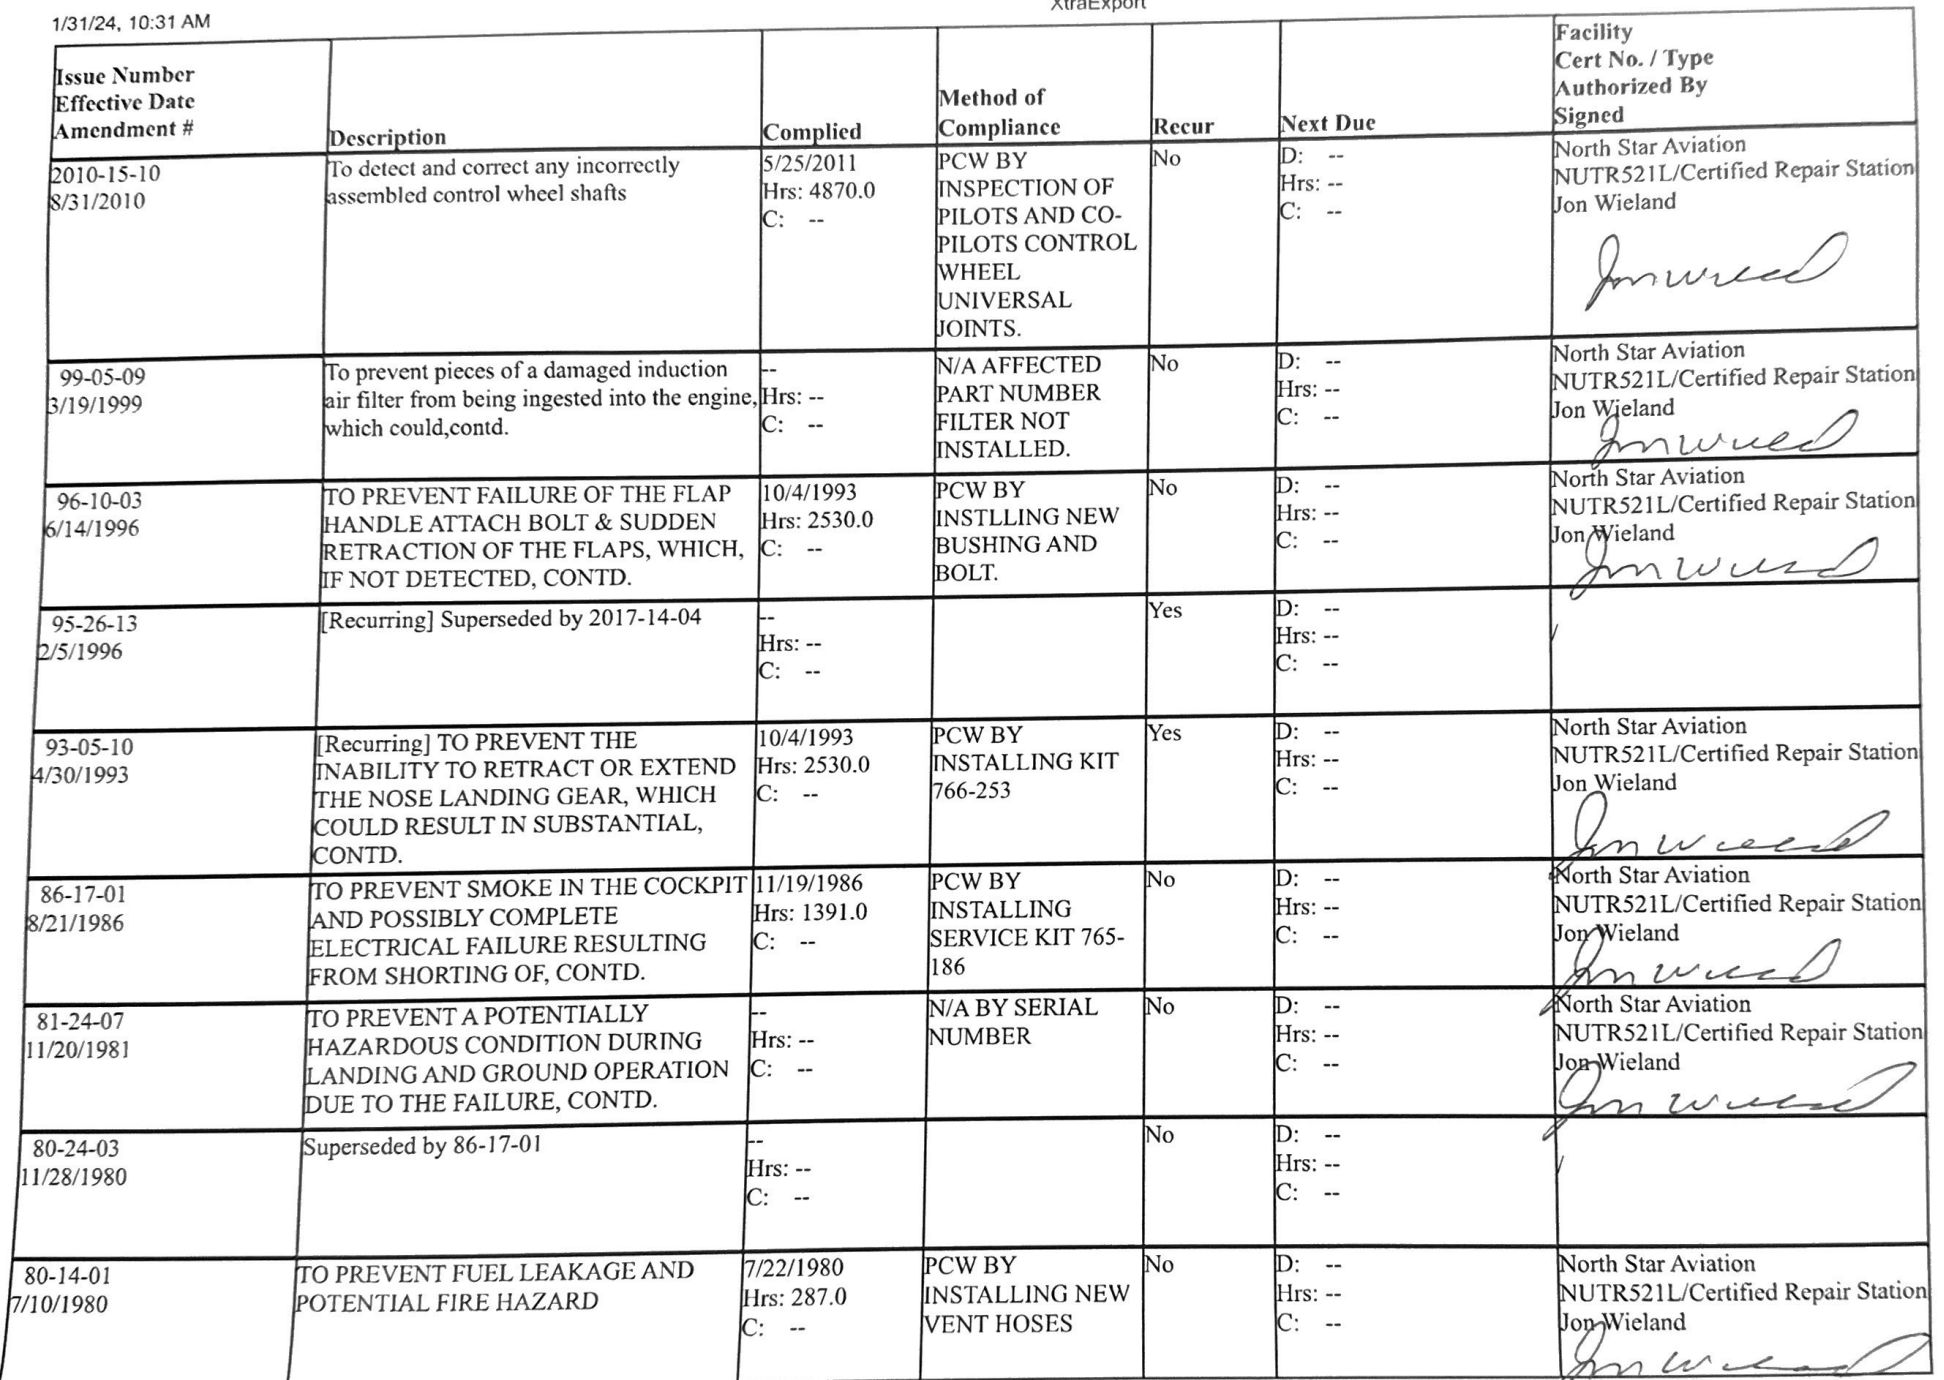 1/31/24, 10:31 AM
XtraExport
Issue Number
Effective Date
Amendment #
Description
Complied
Method of
Compliance
Recur
Next Due
Facility
Cert No. / Type
Authorized By
Signed
2010-15-10
8/31/2010
To detect and correct any incorrectly
assembled control wheel shafts
5/25/2011
Hrs: 4870.0
C: --
PCW BY
INSPECTION OF
PILOTS AND CO-
PILOTS CONTROL
WHEEL
UNIVERSAL
JOINTS.
No
D: --
Hrs: --
C: --
North Star Aviation
NUTR521L/Certified Repair Station
Jon Wieland
99-05-09
3/19/1999
To prevent pieces of a damaged induction
air filter from being ingested into the engine,
which could,contd.
--
Hrs: --
C: --
N/A AFFECTED
PART NUMBER
FILTER NOT
INSTALLED.
No
D: --
Hrs: --
C: --
North Star Aviation
NUTR521L/Certified Repair Station
Jon Wieland
96-10-03
6/14/1996
TO PREVENT FAILURE OF THE FLAP
HANDLE ATTACH BOLT & SUDDEN
RETRACTION OF THE FLAPS, WHICH,
IF NOT DETECTED, CONTD.
10/4/1993
Hrs: 2530.0
C: --
PCW BY
INSTLLING NEW
BUSHING AND
BOLT.
No
D: --
Hrs: --
C: --
North Star Aviation
NUTR521L/Certified Repair Station
Jon Wieland
95-26-13
2/5/1996
[Recurring] Superseded by 2017-14-04
--
Hrs: --
C: --
Yes
D: --
Hrs: --
C: --
93-05-10
4/30/1993
[Recurring] TO PREVENT THE
INABILITY TO RETRACT OR EXTEND
THE NOSE LANDING GEAR, WHICH
COULD RESULT IN SUBSTANTIAL,
CONTD.
10/4/1993
Hrs: 2530.0
C: --
PCW BY
INSTALLING KIT
766-253
Yes
D: --
Hrs: --
C: --
North Star Aviation
NUTR521L/Certified Repair Station
Jon Wieland
86-17-01
8/21/1986
TO PREVENT SMOKE IN THE COCKPIT
AND POSSIBLY COMPLETE
ELECTRICAL FAILURE RESULTING
FROM SHORTING OF, CONTD.
11/19/1986
Hrs: 1391.0
C: --
PCW BY
INSTALLING
SERVICE KIT 765-
186
No
D: --
Hrs: --
C: --
North Star Aviation
NUTR521L/Certified Repair Station
Jon Wieland
81-24-07
11/20/1981
TO PREVENT A POTENTIALLY
HAZARDOUS CONDITION DURING
LANDING AND GROUND OPERATION
DUE TO THE FAILURE, CONTD.
--
Hrs: --
C: --
N/A BY SERIAL
NUMBER
No
D: --
Hrs: --
C: --
North Star Aviation
NUTR521L/Certified Repair Station
Jon Wieland
80-24-03
11/28/1980
Superseded by 86-17-01
--
Hrs: --
C: --
No
D: --
Hrs: --
C: --
80-14-01
7/10/1980
TO PREVENT FUEL LEAKAGE AND
POTENTIAL FIRE HAZARD
7/22/1980
Hrs: 287.0
C: --
PCW BY
INSTALLING NEW
VENT HOSES
No
D: --
Hrs: --
C: --
North Star Aviation
NUTR521L/Certified Repair Station
Jon Wieland